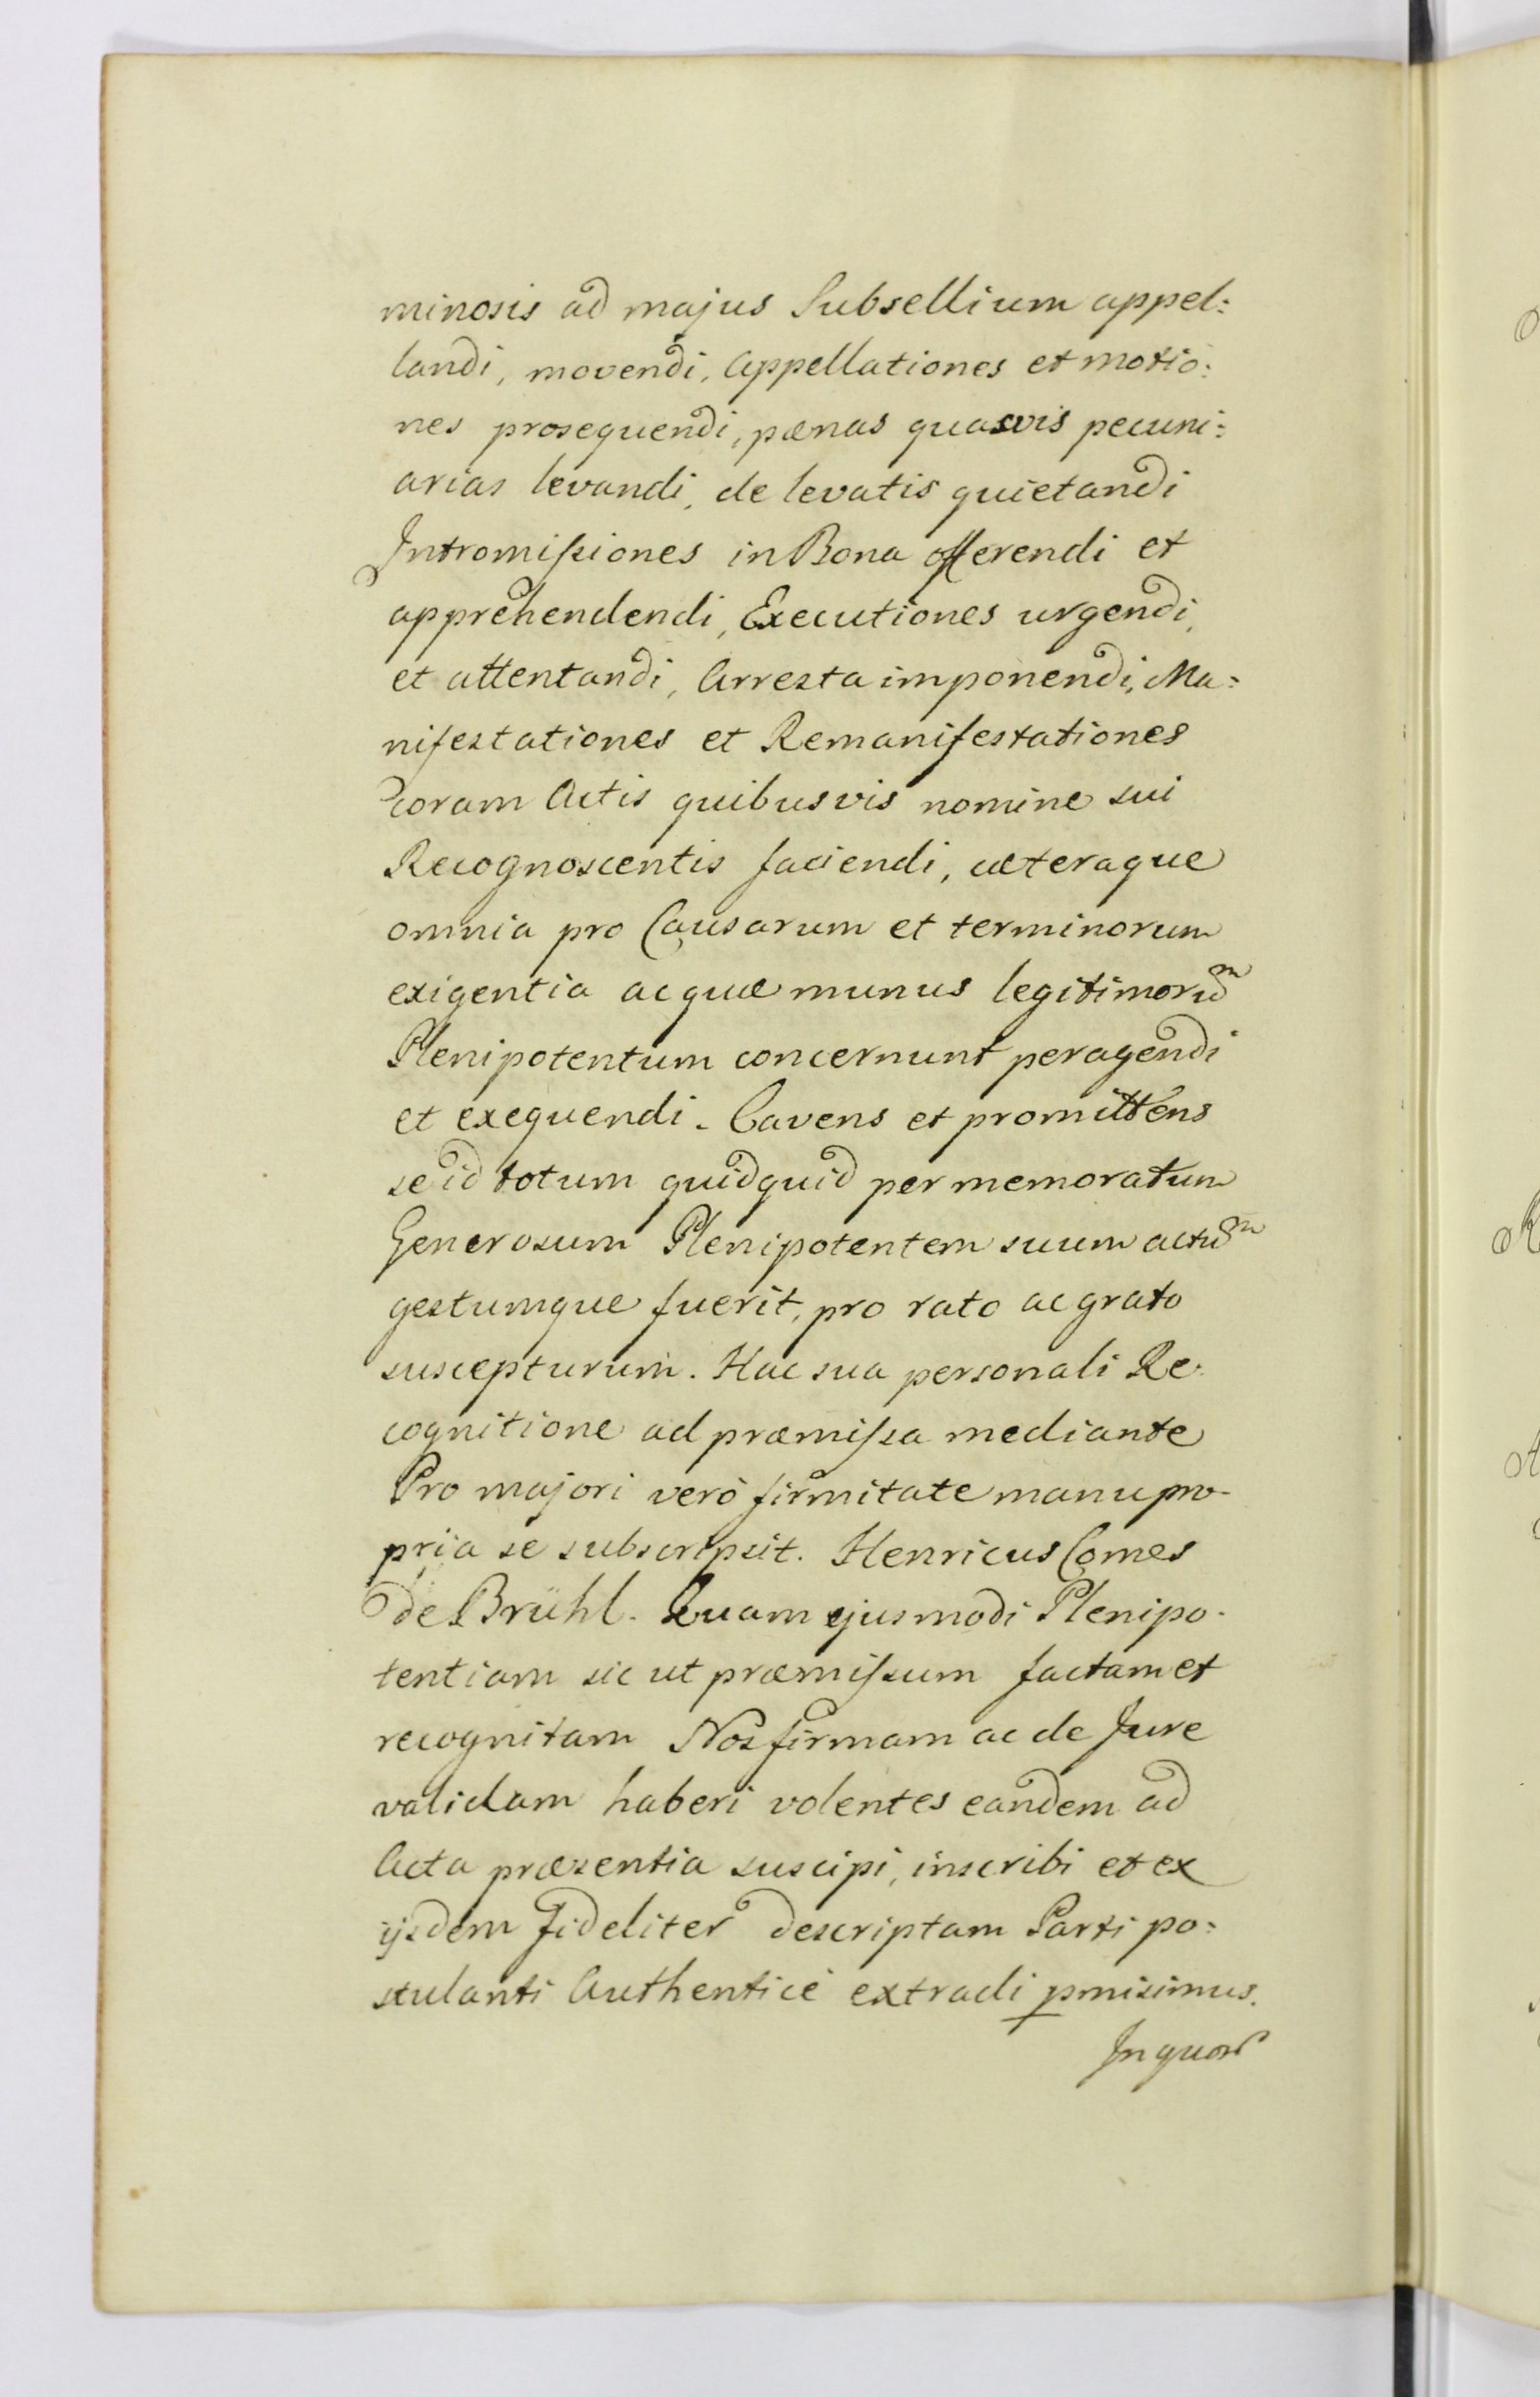 minosis ad majus Subsellium appel:
landi, movendi, Appellationes et motio:
nes prosequendi, pœnas quasvis pecuni:
arias levandi, de levatis quietandi
Intromiſsiones in Bona offerendi et
apprehendendi, Executiones urgendi,
et attentandi, Arresta imponendi, Ma:
nifestationes et Remanifestationes
coram Actis quibusvis nomine sui
Recognoscentis faciendi, cæteraque
omnia pro Causarum et terminorum
exigentia ac quæ munus legitimorum
Plenipotentum concernunt peragendi
et exequendi. Cavens et promittens
se id totum quidquid per memoratum
Generosum Plenipotentem suum actum
gestumque fuerit, pro rato ac grato
suscepturum. Hac sua personali Re:
cognitione ad præmiſsa mediante
Pro majori verò firmitate manu pro-
pria se subscripsit. Henricus Comes
de Brühl. Quam ejusmodi Plenipo-
tentiam sic ut præmiſsum factam et
recognitam Nos firmam ac de Jure
validam haberi volentes eandem ad
Acta præsentia suscipi, inscribi et ex
ijsdem fideliter descriptam Parti po:
stulanti Authenticè extradi pmisimus.
In quor